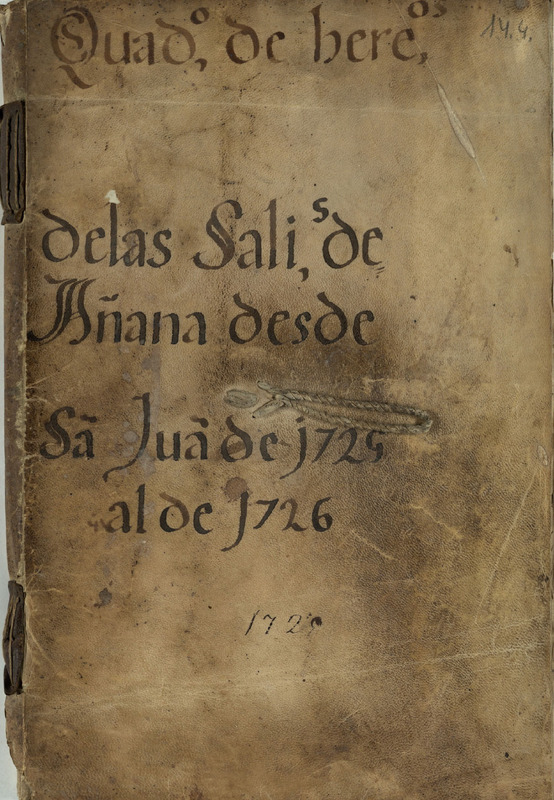 Quadº, de hereºs,
14.4.
delas Sali,s de
Añana desde
Sã Juã de 1725
al de 1726
1725